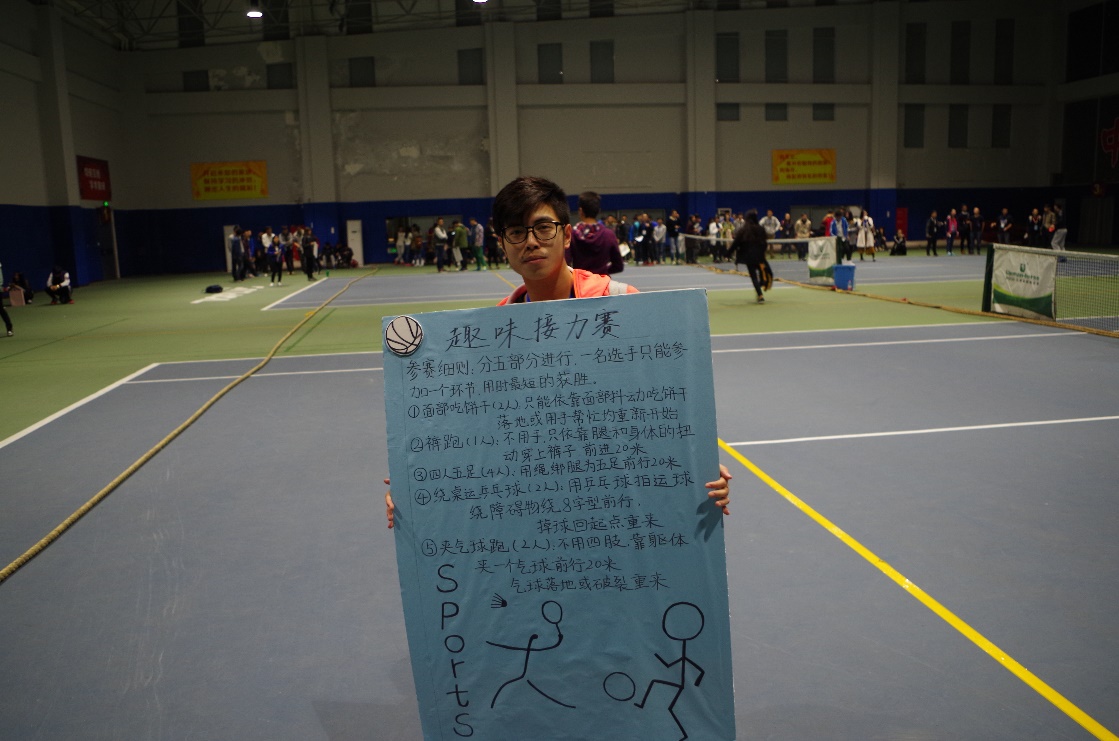 趣味接力赛
参赛细则：分五部分进行，一名选手只能参
加一个环节，用时最短的获胜。
①面部吃饼干(2人)：只能依靠面部抖动吃饼干
落地或用手帮忙均重新开始
②裤跑(1人)：不用手，只依靠腿和身体的扭
动穿上裤子 前进20米
③四人五足(4人)：用绳绑腿为五足前行20米
④绕桌运乒乓球(2人)：用乒乓球拍运球
绕障碍物绕8字型前行，
掉球回起点重来
⑤夹气球跑(2人)：不用四肢，靠躯体
夹一个气球前行20米
气球落地或破裂重来
Sports